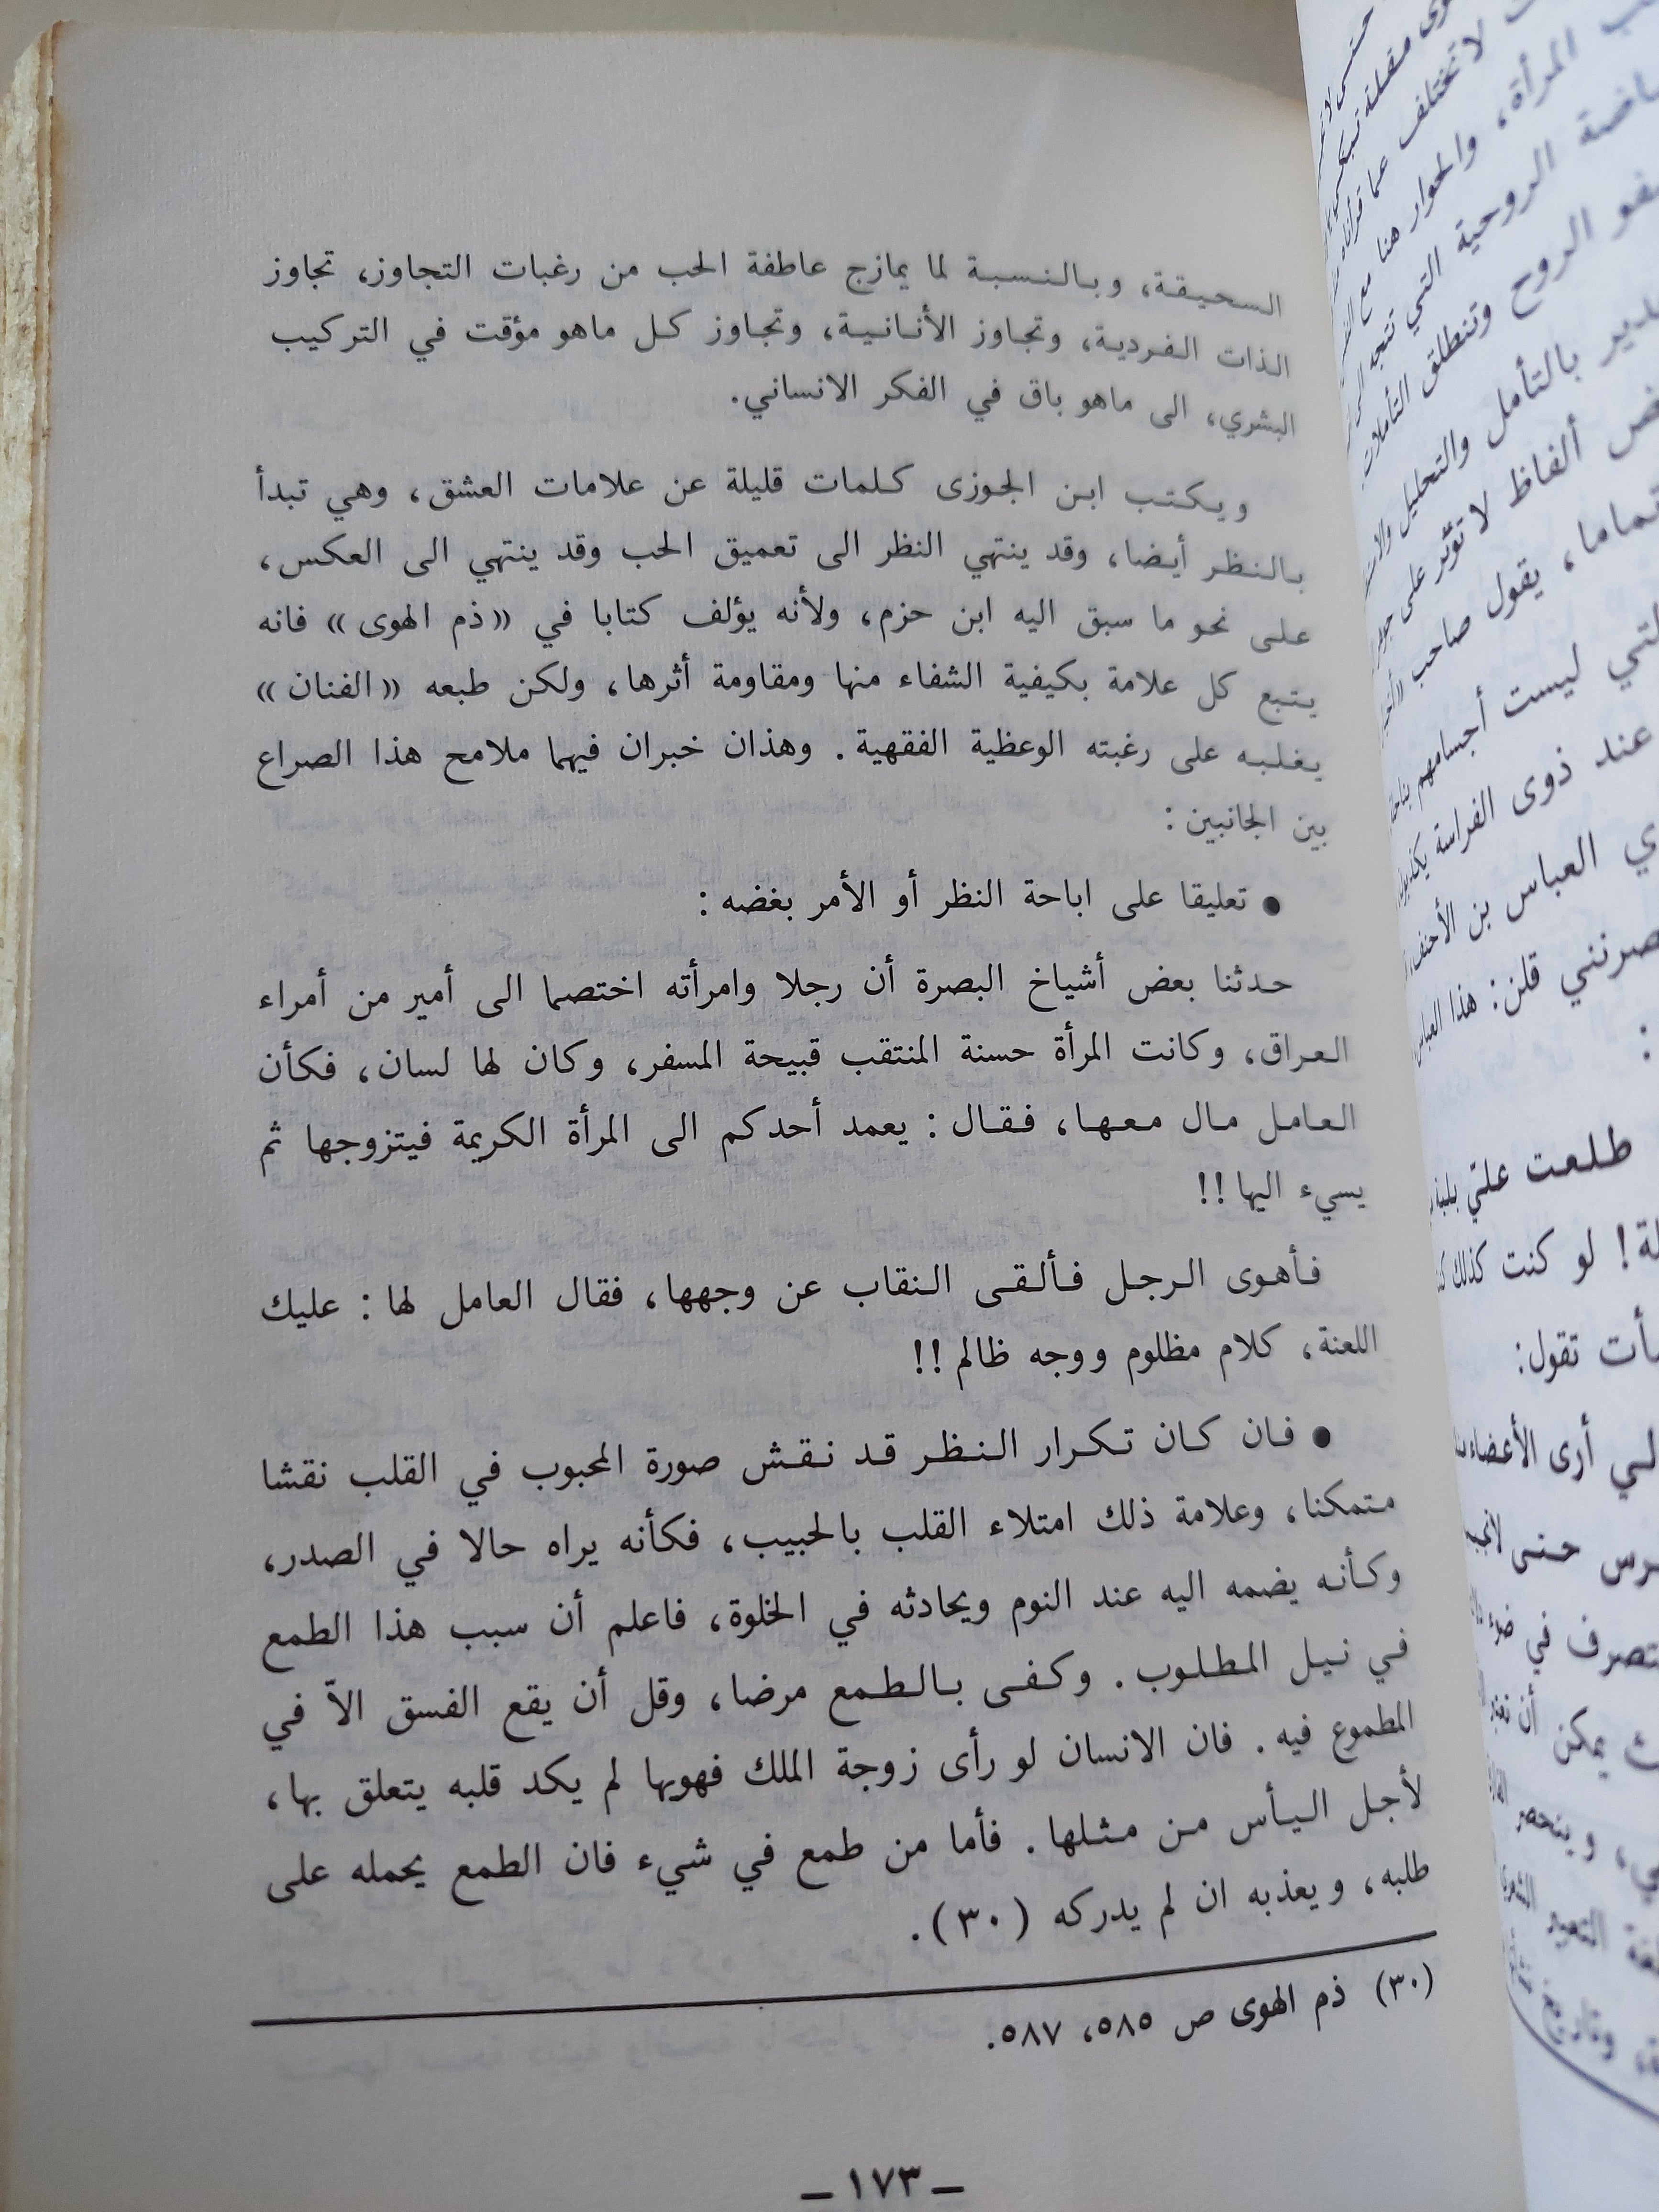 السحيقة، وبالنسبة لما يمازج عاطفة الحب من رغبات التجاوز، تجاوز
الذات الفردية، وتجاوز الأنانية، وتجاوز كل ماهو مؤقت في التركيب
البشري، الى ماهو باق في الفكر الانساني.
ويكتب ابن الجوزى كلمات قليلة عن علامات العشق، وهي تبدأ
بالنظر أيضا، وقد ينتهي النظر الى تعميق الحب وقد ينتهي الى العكس،
على نحو ما سبق اليه ابن حزم، ولأنه يؤلف كتابا في «ذم الهوى» فانه
يتبع كل علامة بكيفية الشفاء منها ومقاومة أثرها، ولكن طبعه «الفنان»
يغلبه على رغبته الوعظية الفقهية. وهذان خبران فيهما ملامح هذا الصراع
بين الجانبين:
● تعليقا على اباحة النظر أو الأمر بغضه:
حدثنا بعض أشياخ البصرة أن رجلا وامرأته اختصما الى أمير من أمراء
العراق، وكانت المرأة حسنة المنتقب قبيحة المسفر، وكان لها لسان، فكأن
العامل مال معها، فقال: يعمد أحدكم الى المرأة الكريمة فيتزوجها ثم
يسيء اليها!!
فأهوى الرجل فألقى النقاب عن وجهها، فقال العامل لها: عليك
اللعنة، كلام مظلوم ووجه ظالم!!
● فان كان تكرار النظر قد نقش صورة المحبوب في القلب نقشا
متمكنا، وعلامة ذلك امتلاء القلب بالحبيب، فكأنه يراه حالا في الصدر،
وكأنه يضمه اليه عند النوم ويحادثه في الخلوة، فاعلم أن سبب هذا الطمع
في نيل المطلوب. وكفى بالطمع مرضا، وقل أن يقع الفسق الاّ في
المطموع فيه. فان الانسان لو رأى زوجة الملك فهويها لم يكد قلبه يتعلق بها،
لأجل اليأس من مثلها. فأما من طمع في شيء فان الطمع يحمله على
طلبه، ويعذبه ان لم يدركه (٣٠).
(٣٠) ذم الهوى ص ٥٨٥، ٥٨٧.
— ١٧٣ —
لا تختلف عما
المرأة، والحوار هنا مع
الروحية التي تتجه
الروح وتنطلق التأملات
بالتأمل والتحليل
ألفاظ لا تؤثر على
تماما، يقول صاحب
ليست أجسامهم
عند ذوى الفراسة
العباس بن الأحنف
قلن: هذا العباس
طلعت عليّ
لو كنت كذلك
تقول:
أرى الأعضاء
حتى
في ضوء
يمكن أن
وينحصر
التعبير